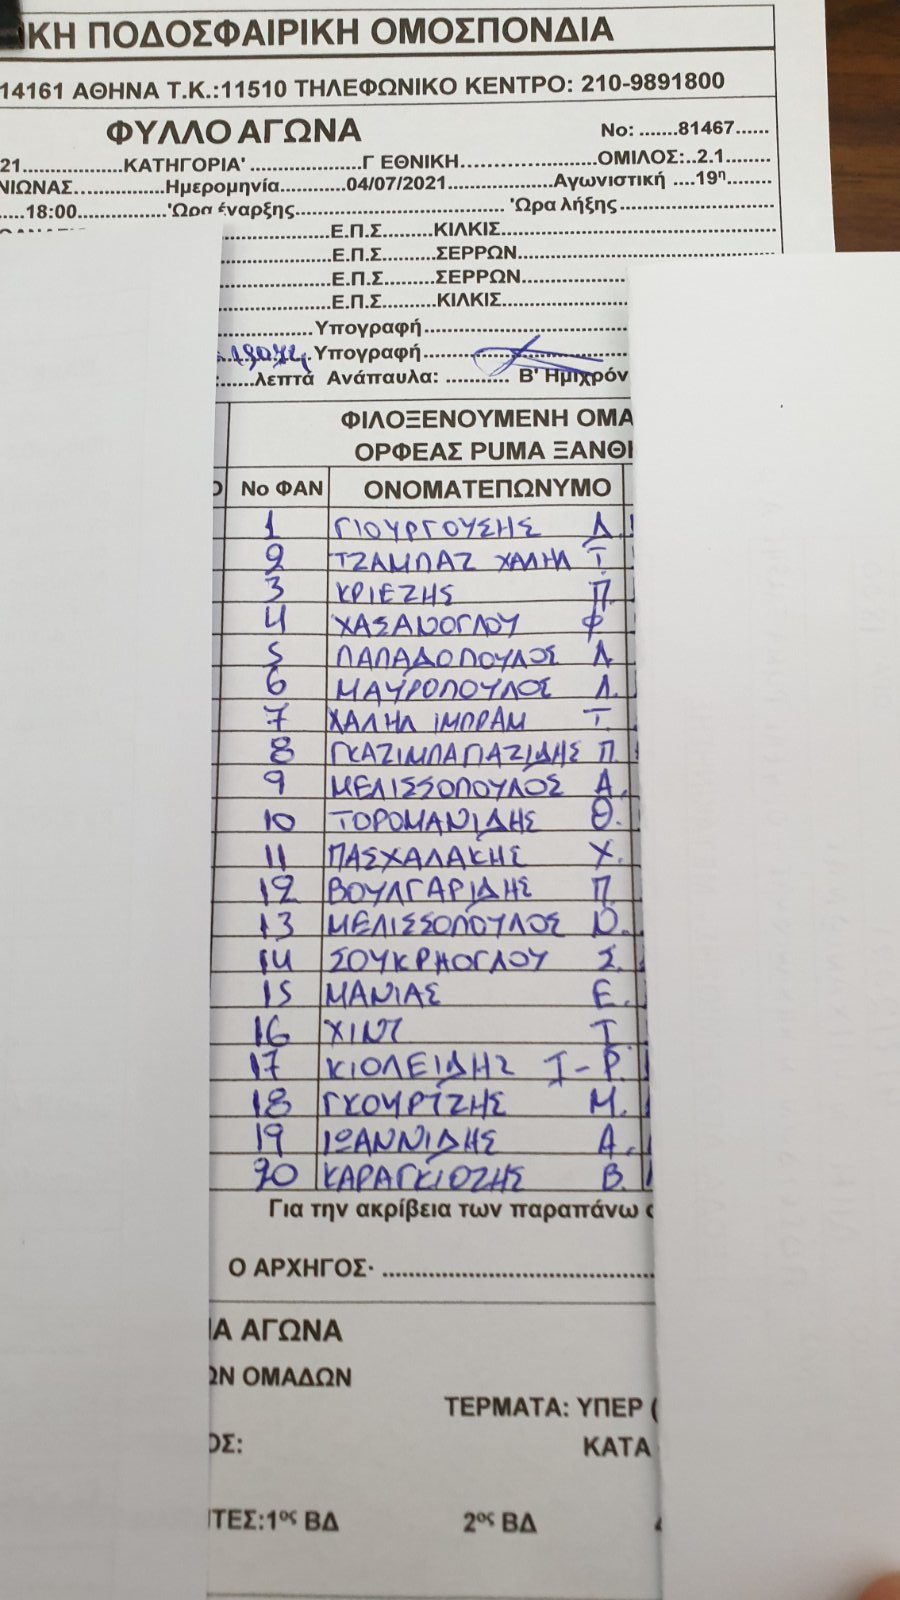 ΚΗ ΠΟΔΟΣΦΑΙΡΙΚΗ ΟΜΟΣΠΟΝΔΙΑ
14161 ΑΘΗΝΑ Τ.Κ.:11510 ΤΗΛΕΦΩΝΙΚΟ ΚΕΝΤΡΟ: 210-9891800
ΦΥΛΛΟ ΑΓΩΝΑ Νο: .......81467......
21....................ΚΑΤΗΓΟΡΙΑ' ......................Γ ΕΘΝΙΚΗ......................ΟΜΙΛΟΣ:..2.1........
ΝΙΩΝΑΣ..................Ημερομηνία.............04/07/2021.....................Αγωνιστική ....19η........
.....18:00..................'Ώρα έναρξης.......................................... 'Ώρα λήξης..............................
.....................Ε.Π.Σ........ΚΙΛΚΙΣ...............................................
.....................Ε.Π.Σ.........ΣΕΡΡΩΝ.............................................
.....................Ε.Π.Σ.........ΣΕΡΡΩΝ..................
.....................Ε.Π.Σ.........ΚΙΛΚΙΣ.....................
..................Υπογραφή......................................
Υπογραφή......................................
:......λεπτά Ανάπαυλα: ........... Β' Ημιχρόν
ΦΙΛΟΞΕΝΟΥΜΕΝΗ ΟΜΑ
ΟΡΦΕΑΣ PUMA ΞΑΝΘΗ
Νο ΦΑΝ ΟΝΟΜΑΤΕΠΩΝΥΜΟ
1 ΓΙΟΥΡΓΟΥΣΗΣ Δ.
2 ΤΖΑΜΠΑΖ ΧΑΛΗΛ Τ.
3 ΚΡΙΕΖΗΣ Π.
4 ΧΑΣΑΝΟΓΛΟΥ Φ
5 ΠΑΠΑΔΟΠΟΥΛΟΣ Λ
6 ΜΑΥΡΟΠΟΥΛΟΣ Λ.
7 ΧΑΛΗΛ ΙΜΠΡΑΜ Τ.
8 ΓΚΑΖΙΜΠΑΓΙΑΖΙΔΗΣ Π.
9 ΜΕΛΙΣΣΟΠΟΥΛΟΣ Α.
10 ΤΟΡΟΜΑΝΙΔΗΣ Θ.
11 ΠΑΣΧΑΛΑΚΗΣ Χ.
12 ΒΟΥΛΓΑΡΙΔΗΣ Π.
13 ΜΕΛΙΣΣΟΠΟΥΛΟΣ Ν.
14 ΣΟΥΚΡΗΟΓΛΟΥ Σ.
15 ΜΑΝΙΑΣ Ε.
16 ΧΙΝΤ Τ
17 ΚΙΟΛΕΙΔΗΣ Ι-Ρ.
18 ΓΚΟΥΡΤΖΗΣ Μ.
19 ΙΩΑΝΝΙΔΗΣ Α.
20 ΚΑΡΑΓΚΙΟΖΗΣ Β.
Για την ακρίβεια των παραπάνω σ
Ο ΑΡΧΗΓΟΣ· ..........................................
ΙΑ ΑΓΩΝΑ
ΩΝ ΟΜΑΔΩΝ
ΤΕΡΜΑΤΑ: ΥΠΕΡ (
ΟΣ: ΚΑΤΑ
ΤΕΣ:1ος ΒΔ 2ος ΒΔ